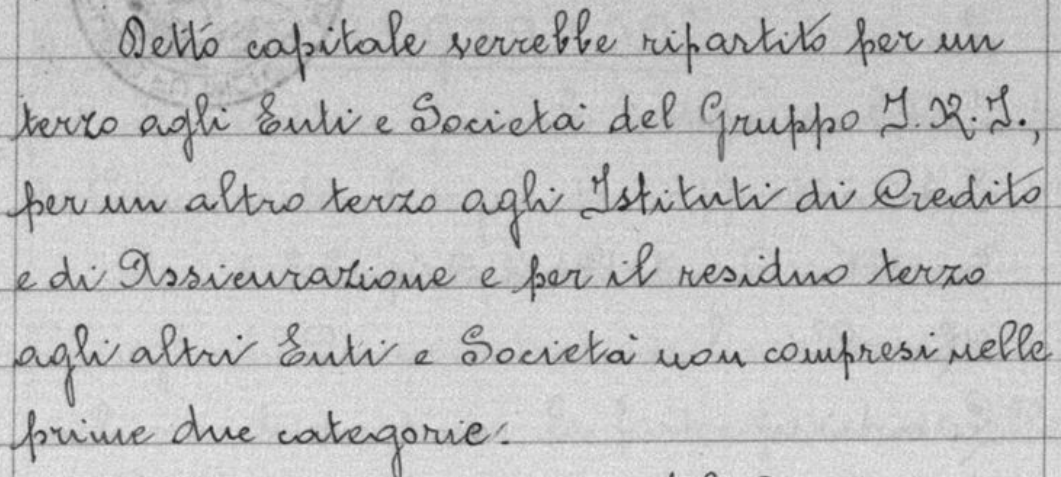 Detto capitale verrebbe ripartito per un
terzo agli Enti e Società del Gruppo I.R.I.,
per un altro terzo agli Istituti di Credito
e di Assicurazione e per il residuo terzo
agli altri Enti e Società non compresi nelle
prime due categorie.